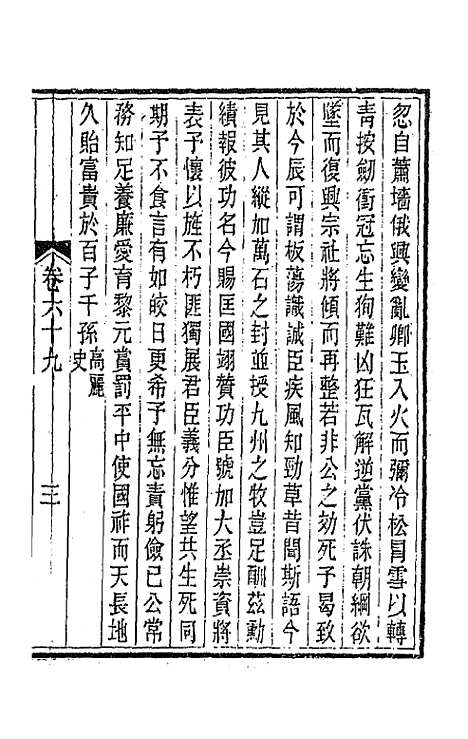 忽自蕭墻俄興變亂卿玉入火而彌冷松冐雪以轉
靑按劒衝冠忘生狥難凶狂瓦解逆黨伏誅朝綱欲
墜而復興宗社將傾而再整若非公之効死予曷致
於今辰可謂板蕩識誠臣疾風知勁草昔聞斯語今
見其人縱加萬石之封並授九州之牧豈足酬茲勳
績報彼功名今賜匡國翊贊功臣號加大丞崇資將
表予懷以旌不朽匪獨展君臣義分惟望共生死同
期予不食言有如皎日更希予無忘責躬儉已公常
務知足養廉愛育黎元賞罰平中使國祚而天長地
久貽富貴於百子千孫高麗史
卷六十九
三